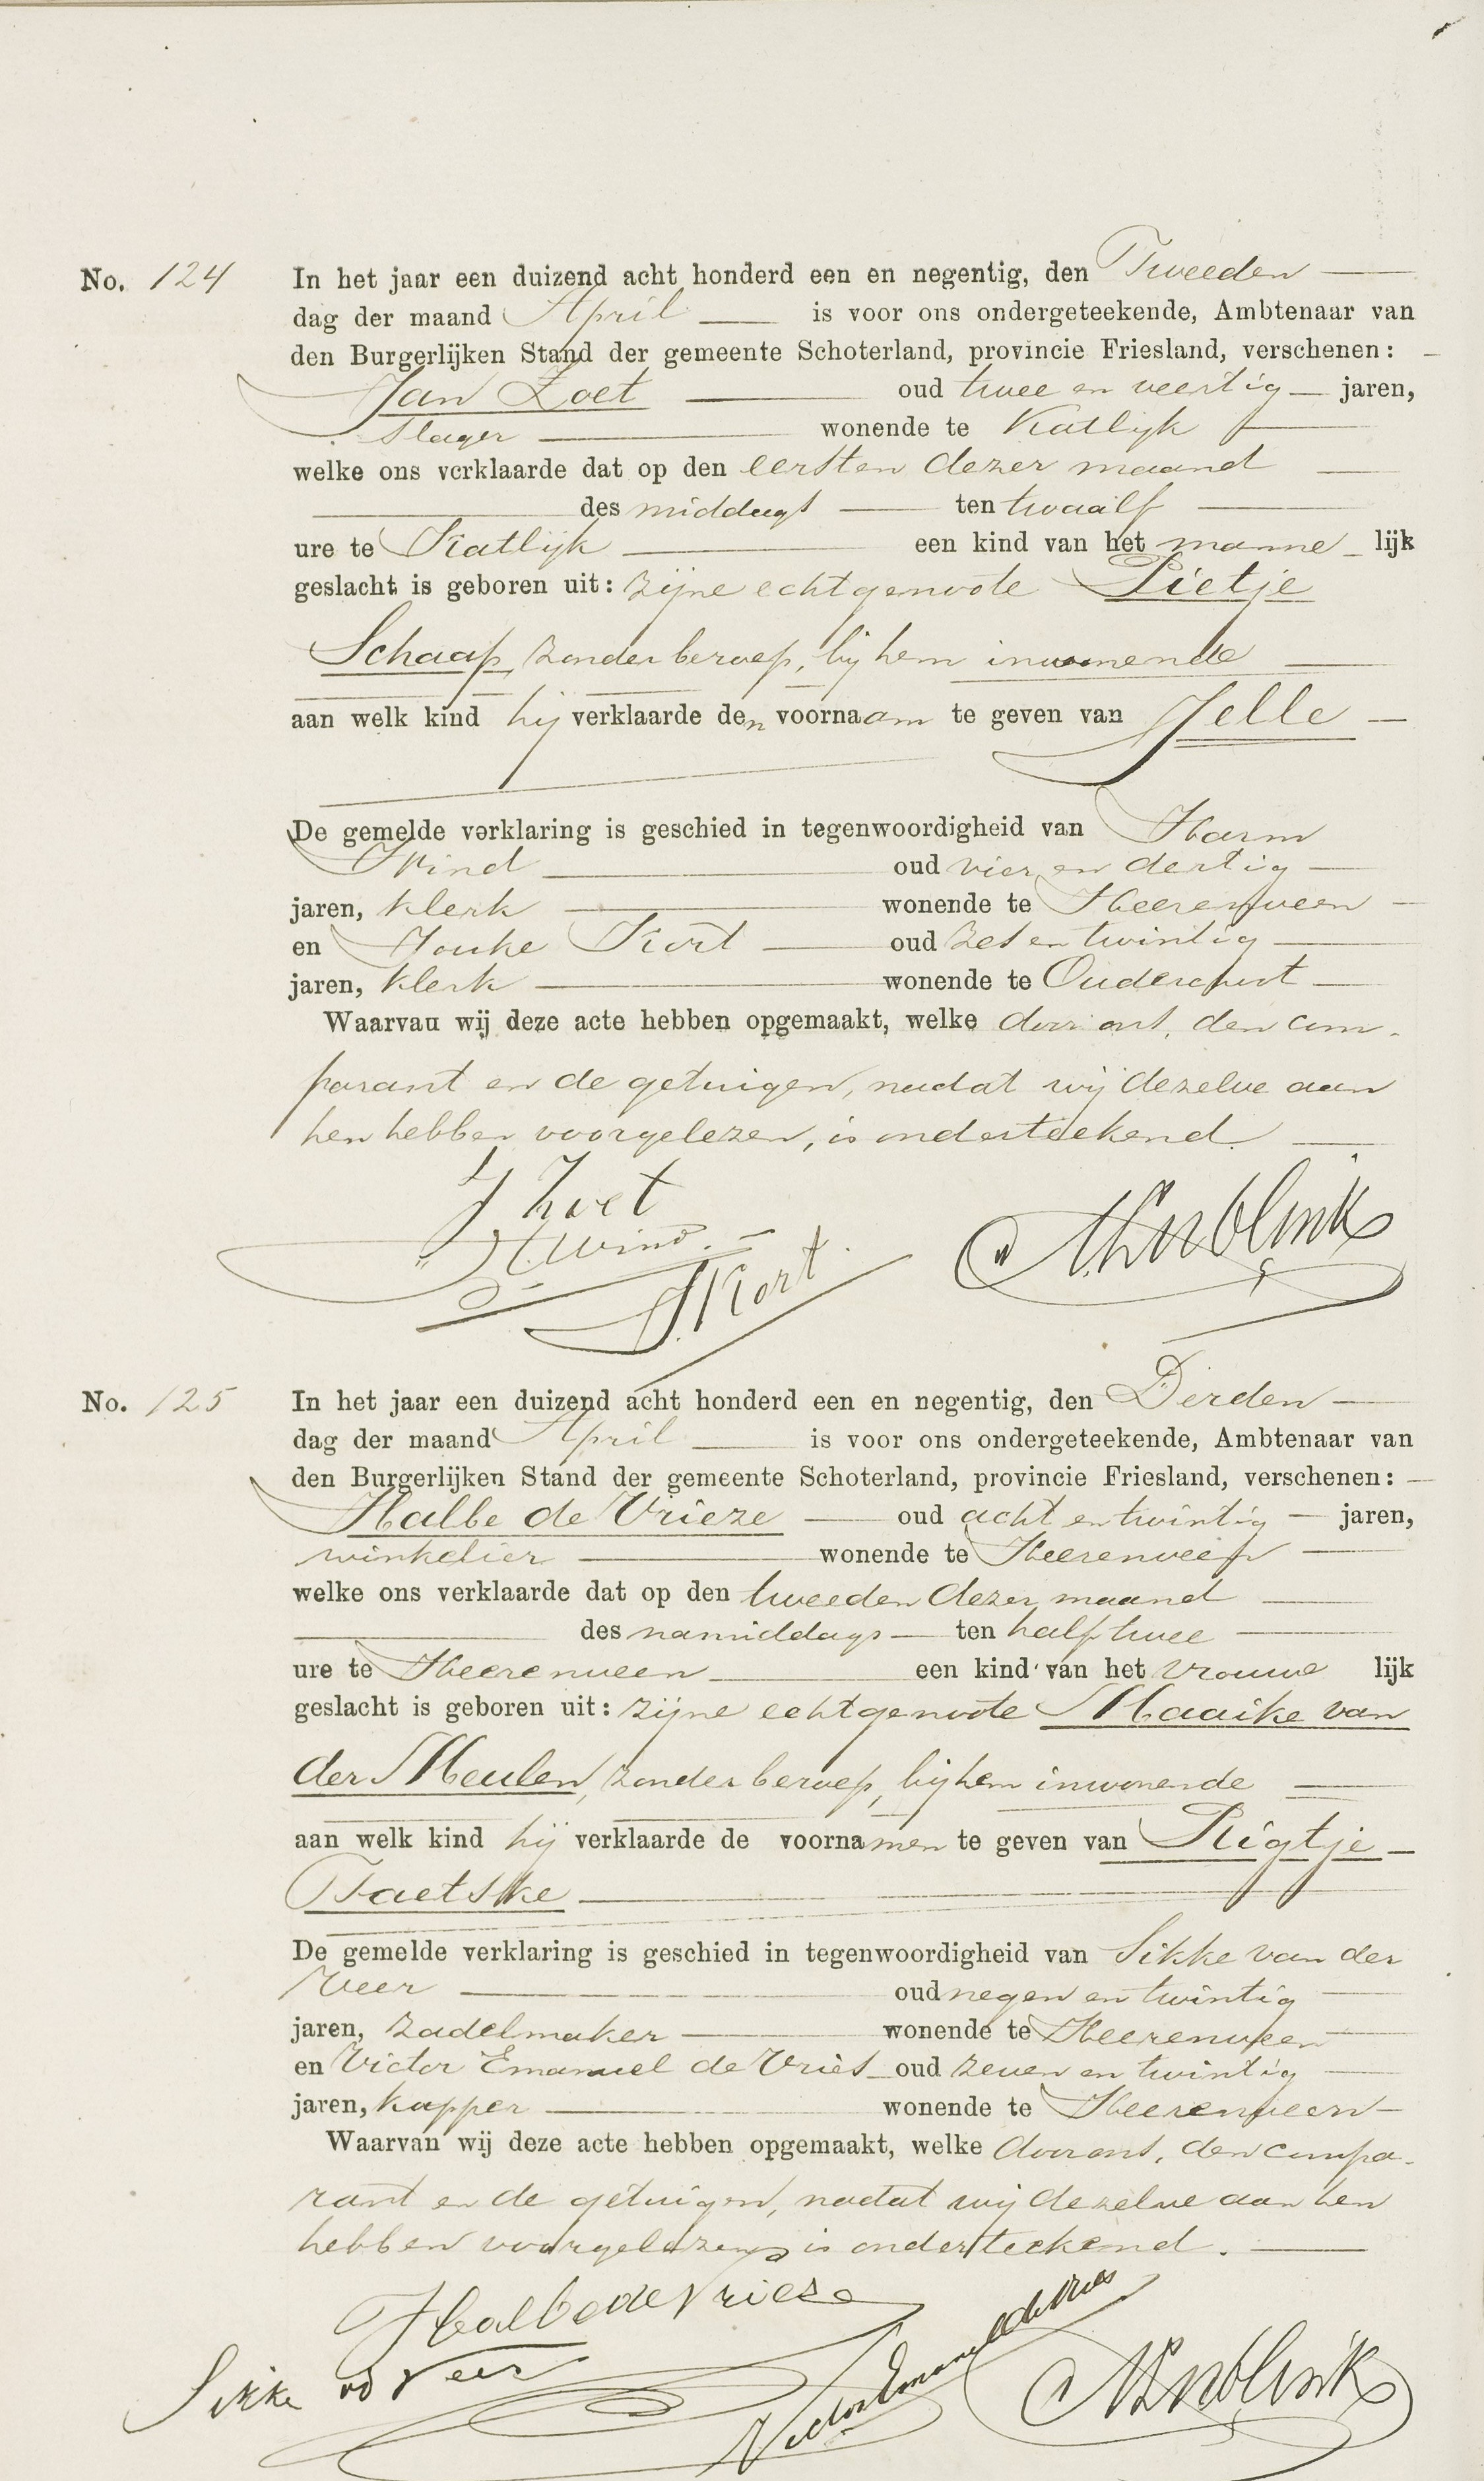 No. 124 In het jaar een duizend acht honderd een en negentig, den Tweeden
dag der maand April is voor ons ondergeteekende, Ambtenaar van
den Burgerlijken Stand der gemeente Schoterland, provincie Friesland, verschenen:
Jan Zoet oud twee en veertig jaren,
Slager wonende te Katlijk
welke ons verklaarde dat op den eersten dezer maand
des middags ten twaalf
ure te Katlijk een kind van het manne lijk
geslacht is geboren uit: zijne echtgenoote Pietje
Schaap, zonder beroep, bij hem inwonende
aan welk kind hij verklaarde den voornaam te geven van Jelle
De gemelde verklaring is geschied in tegenwoordigheid van Harm
Wind oud vier en dertig
jaren, klerk wonende te Heerenveen
en Jouke Kort oud zes en twintig
jaren, klerk wonende te Oudeschoot
Waarvan wij deze acte hebben opgemaakt, welke door ons, den com-
parant en de getuigen, nadat wij dezelve aan
hen hebben voorgelezen, is onderteekend.
J Zoet
H Wind.
J. Kort
No. 125 In het jaar een duizend acht honderd een en negentig, den Derden
dag der maand April is voor ons ondergeteekende, Ambtenaar van
den Burgerlijken Stand der gemeente Schoterland, provincie Friesland, verschenen:
Halbe de Vrieze oud acht en twintig jaren,
winkelier wonende te Heerenveen
welke ons verklaarde dat op den tweeden dezer maand
des namiddags ten half twee
ure te Heerenveen een kind van het vrouwe lijk
geslacht is geboren uit: zijne echtgenoote Maaike van
der Meulen, zonder beroep, bij hem inwonende
aan welk kind hij verklaarde de voornamen te geven van Rigtje
Baetske
De gemelde verklaring is geschied in tegenwoordigheid van Sikke van der
Veer oud negen en twintig
jaren, zadelmaker wonende te Heerenveen
en Victor Emanuel de Vries oud zeven en twintig
jaren, kapper wonende te Heerenveen
Waarvan wij deze acte hebben opgemaakt, welke door ons, den compa-
rant en de getuigen, nadat wij dezelve aan hen
hebben voorgelezen, is onderteekend.
Halbe de Vrieze
Sikke vd Veer
Victor Emanuel de Vries